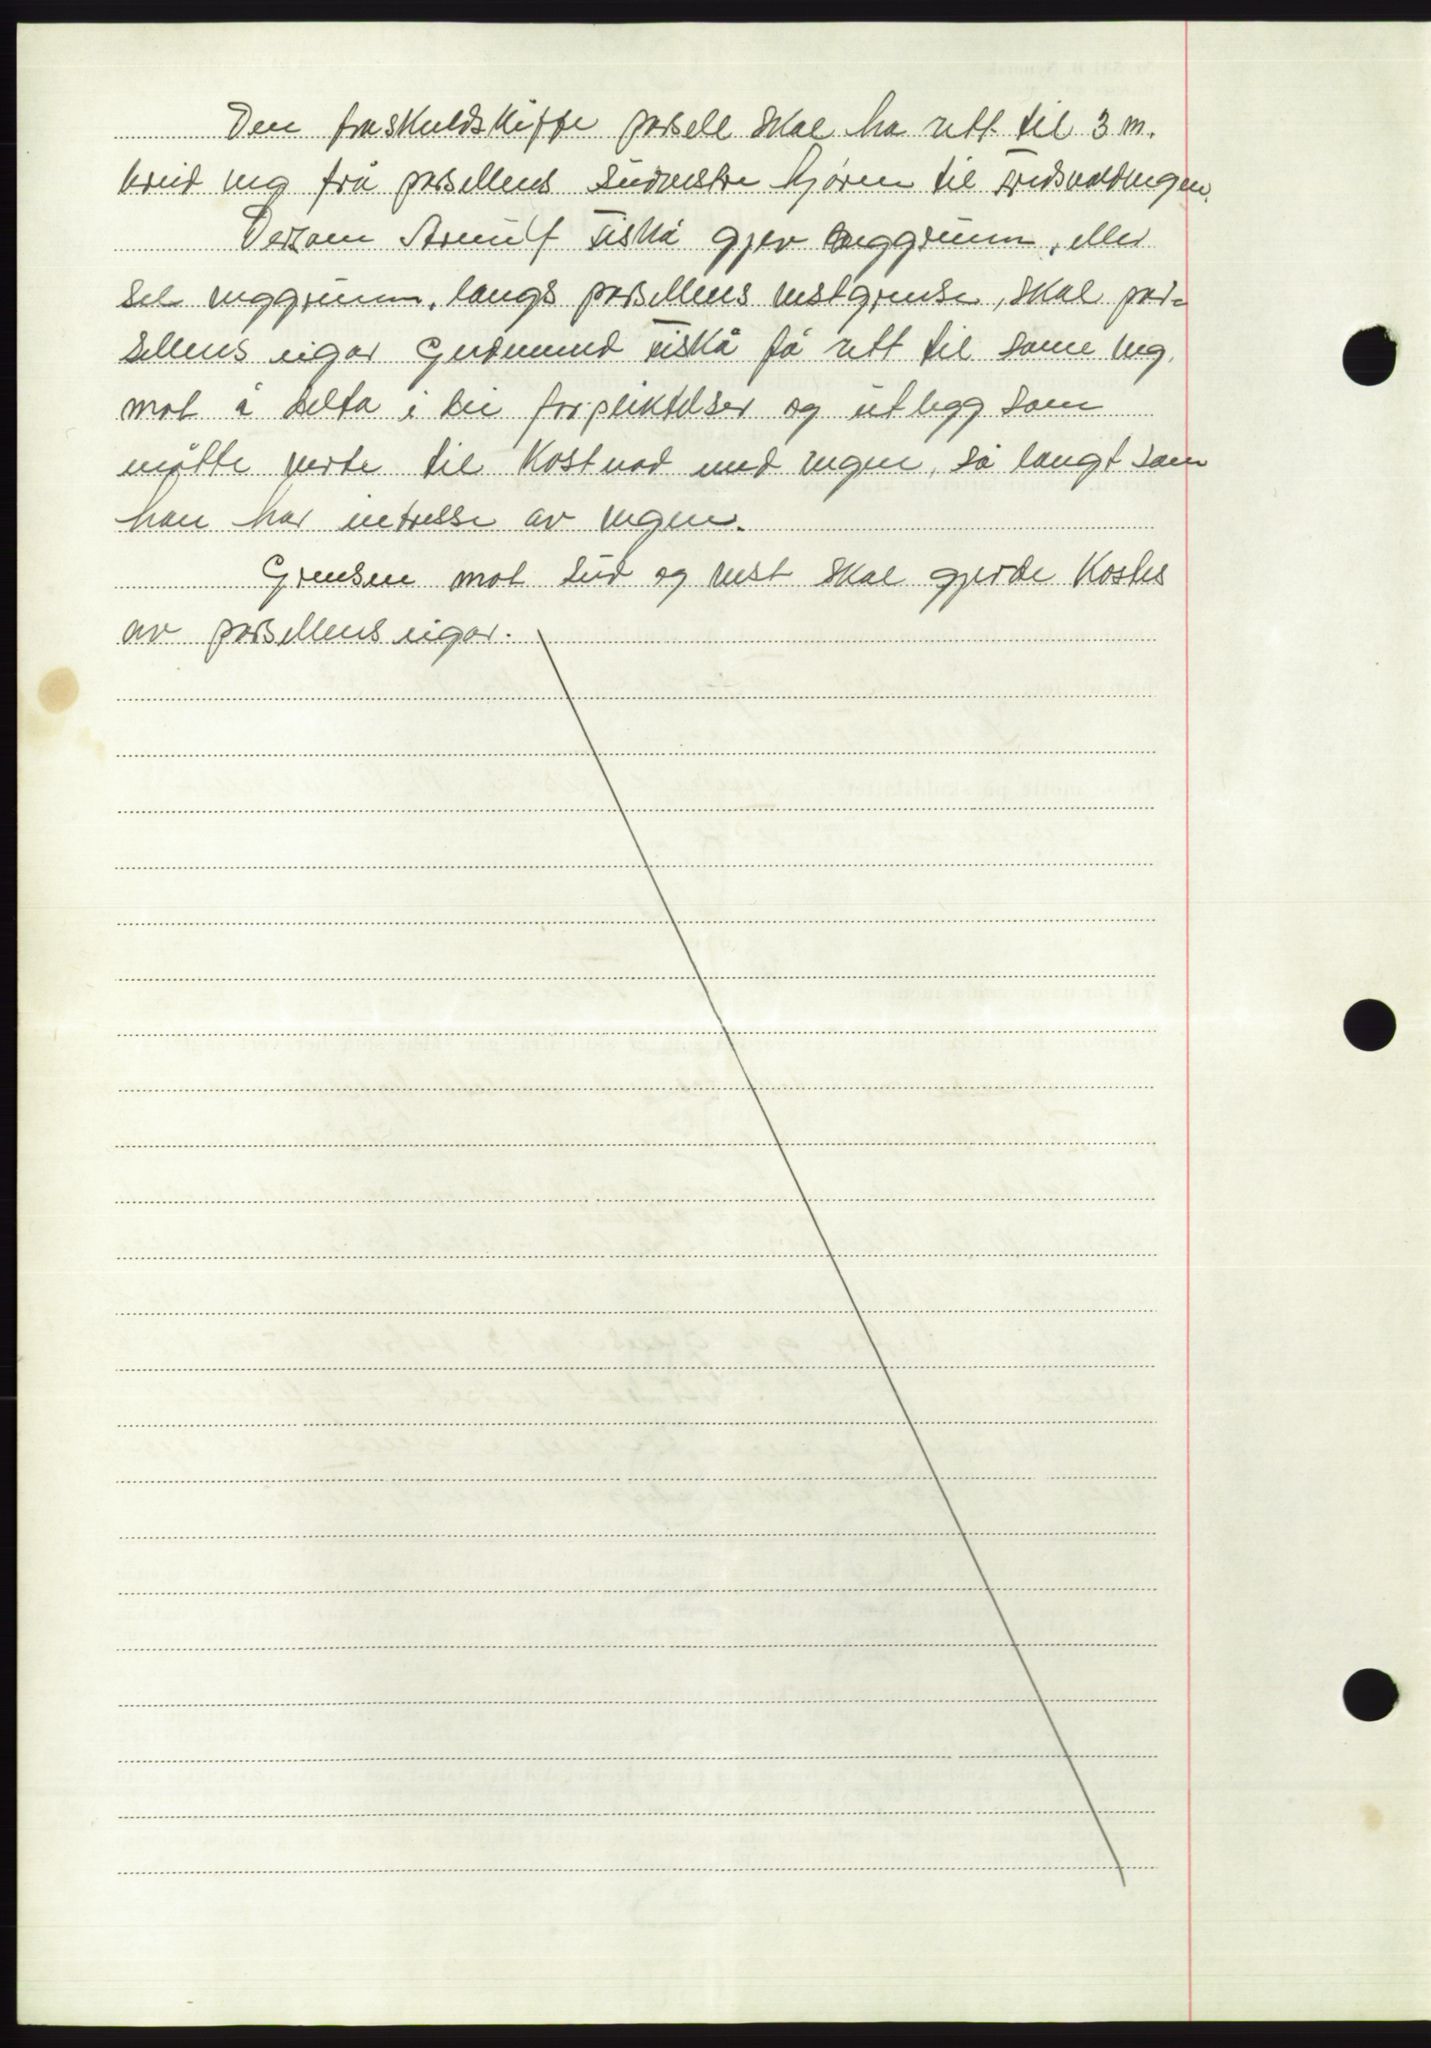 Den fraskuldskifte parsell skal ha rett til 3 m.
breid veg frå parsellens sudvestre hjørne til Fredsvollvegen.
Dersom Arnulf Fiskå gjev veggrunn, eller
sel veggrunn, langs parsellens vestgrense, skal par-
sellens eigar Gudmund Fiskå få rett til same veg,
mot å delta i dei forpliktelser og utlegg som
måtte verte til Kostnad med vegen, så langt som
han har intresse av vegen.
Grensen mot sud og vest skal gjerde Kostes
av parsellens eigar.